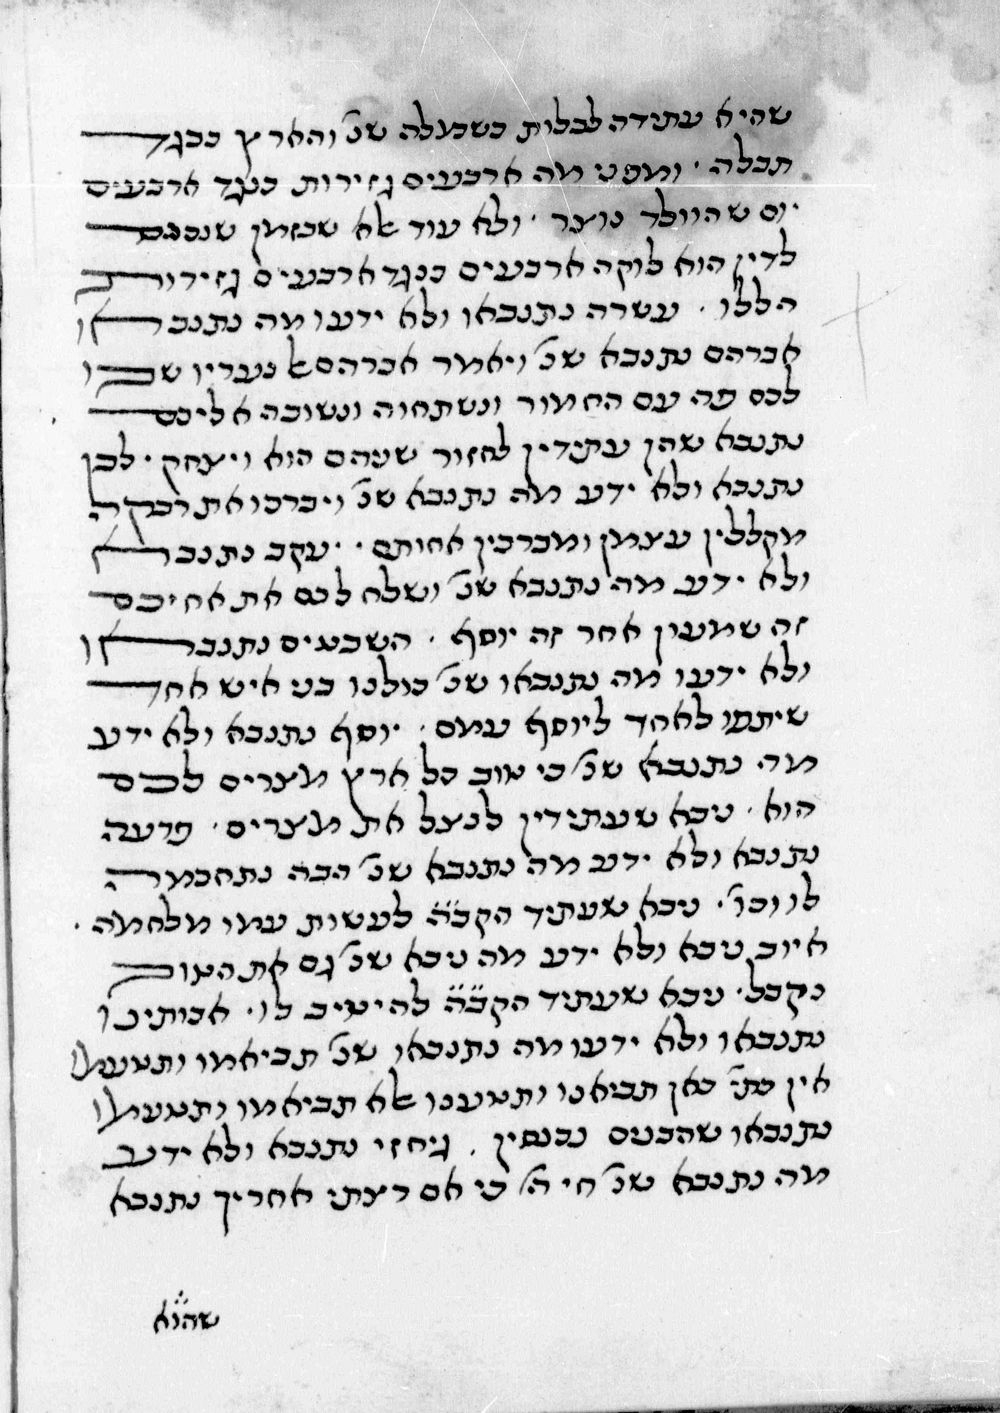 שהיא עתידה לבלות כשמלה שנ' והארץ כבגד
תבלה · ומפני מה ארבעים גזירות כנגד ארבעים
יום שהוולד נוצר · ולא עוד אלא שבזמן שנכנס
לדין הוא לוקה ארבעים כנגד ארבעים גזירות
הללו · עשרה נתנבאו ולא ידעו מה נתנבאו
אברהם נתנבא שנ' ויאמר אברהם אל נעריו שבו
לכם פה עם החמור ונשתחוה ונשובה אליכם
נתנבא שהן עתידין לחזור שניהם הוא ויצחק · לבן
נתנבא ולא ידע מה נתנבא שנ' ויברכו את רבקה
מקללין עצמן ומברכין אחותם · יעקב נתנבא
ולא ידע מה נתנבא שנ' ושלח לכם את אחיכם
זה שמעון אחר זה יוסף · השבטים נתנבאו
ולא ידעו מה נתנבאו שנ' כולנו בני איש אחד
שיתפו לאחד ליוסף עמם · יוסף נתנבא ולא ידע
מה נתנבא שנ' כי טוב כל ארץ מצרים לכם
הוא · ניבא שעתידין לנצל את מצרים · פרעה
נתנבא ולא ידע מה נתנבא שנ' הבה נתחכמה
לו וכו' · ניבא שעתיד הקב"ה לעשות עמו מלחמה ·
איוב ניבא ולא ידע מה ניבא שנ' גם את הטוב
נקבל · ניבא שעתיד הקב"ה להיטיב לו · אבותינו
נתנבאו ולא ידעו מה נתנבאו שנ' תביאמו ותטעמו
אין כתי' כאן תביאנו ותטענו אלא תביאמו ותטעמו
נתנבאו שהבנים נכנסין · גיחזי נתנבא ולא ידע
מה נתנבא שנ' חי ה' כי אם רצתי אחריך נתנבא
שהוא